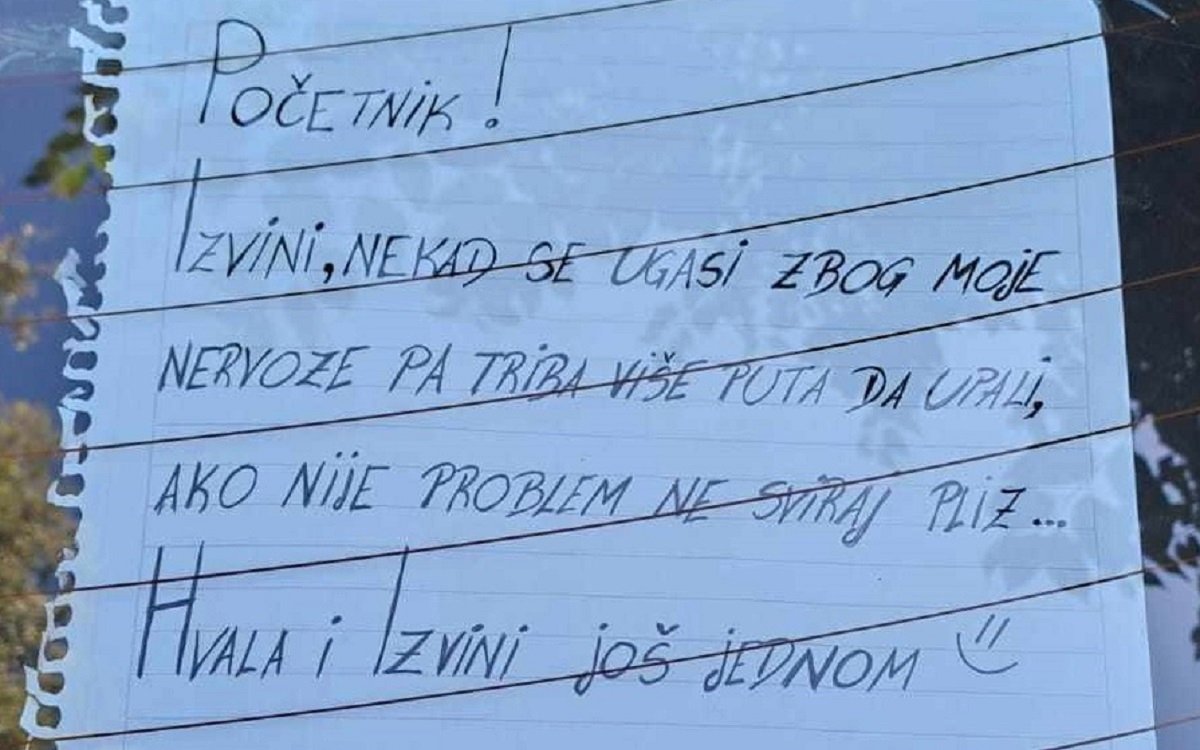 POČETNIK!
IZVINI, NEKAD SE UGASI ZBOG MOJE
NERVOZE PA TRIBA VIŠE PUTA DA UPALI,
AKO NIJE PROBLEM NE SVIRAJ PLIZ...
HVALA I IZVINI JOŠ JEDNOM